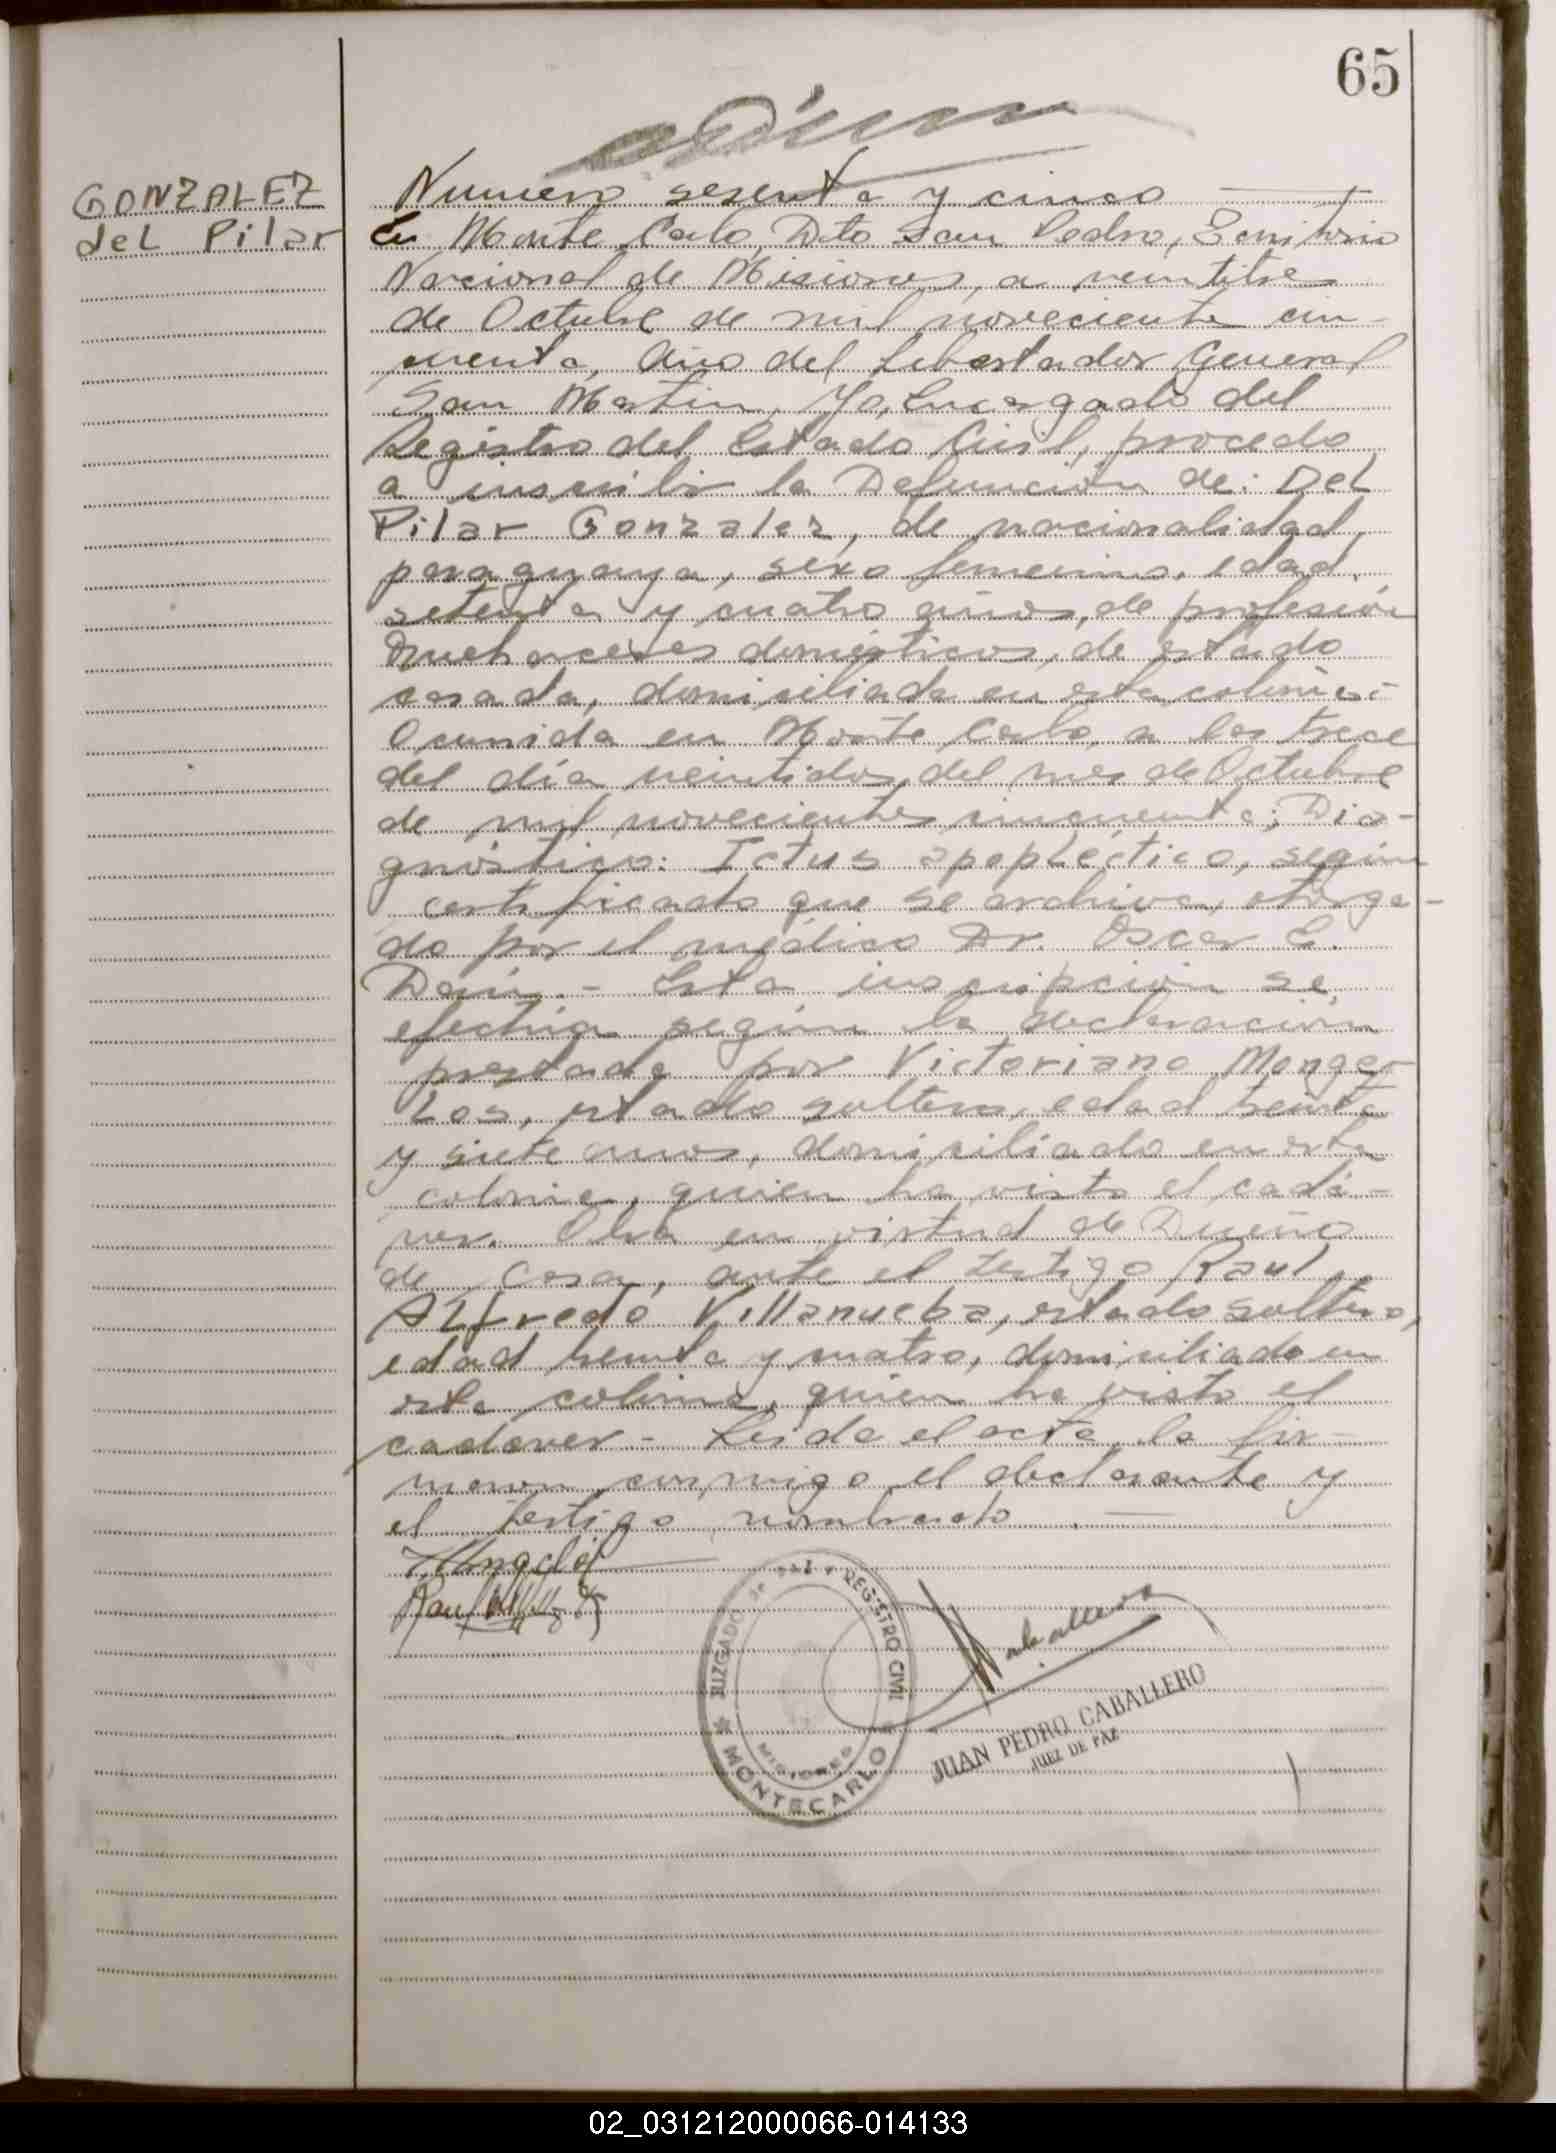 65
GONZALEZ
del Pilar
Numero sesenta y cinco
En Monte Carlo, Dto San Pedro, Territorio
Nacional de Misiones, a veintitres
de Octubre de mil novecientos cin-
cuenta, Año del Libertador General
San Martin, Yo, Encargado del
Registro del Estado Civil, procedo
a inscribir la Defunción de: Del
Pilar Gonzalez, de nacionalidad
paraguaya, sexo femenino, edad
setenta y cuatro años, de profesión
quehaceres domésticos, de estado
casada, domiciliada en esta colonia:-
Ocurrida en Monte Carlo, a las trece
del día veintidos del mes de Octubre
de mil novecientos cincuenta; Dia-
gnóstico: Ictus apopléctico, según
certificado que se archiva, otorga-
do por el médico Dr. Oscar E.
Esta inscripción se
efectúa según la declaración
prestada por Victoriano Monge-
los, estado soltero, edad treinta
y siete años, domiciliado en esta
colonia, quien ha visto el cadá-
ver. Obra en virtud de Dueño
de Casa, ante el testigo Raul
Alfredo Villanueba, estado soltero,
edad treinta y cuatro, domiciliado en
esta colonia, quien ha visto el
cadaver - Leida el acta, la fir-
maron conmigo el declarante y
el testigo nombrado.-
JUZGADO de PAZ Y REGISTRO CIVIL
MISIONES
MONTECARLO
JUAN PEDRO CABALLERO
JUEZ DE PAZ
02_031212000066-014133